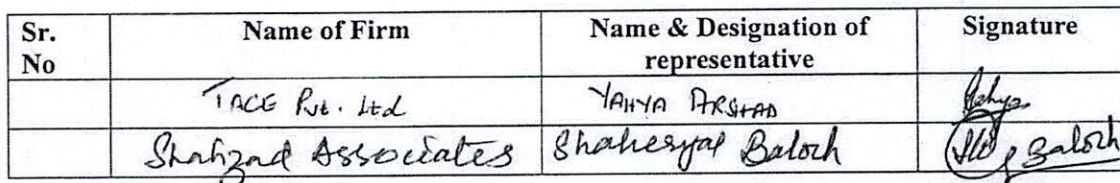 Sr. No Name of Firm Name & Designation of representative Signature
TACE Pvt. Ltd YAHYA ARSHAD Yahya
Shahzad Associates Shaheryar Baloch Baloch